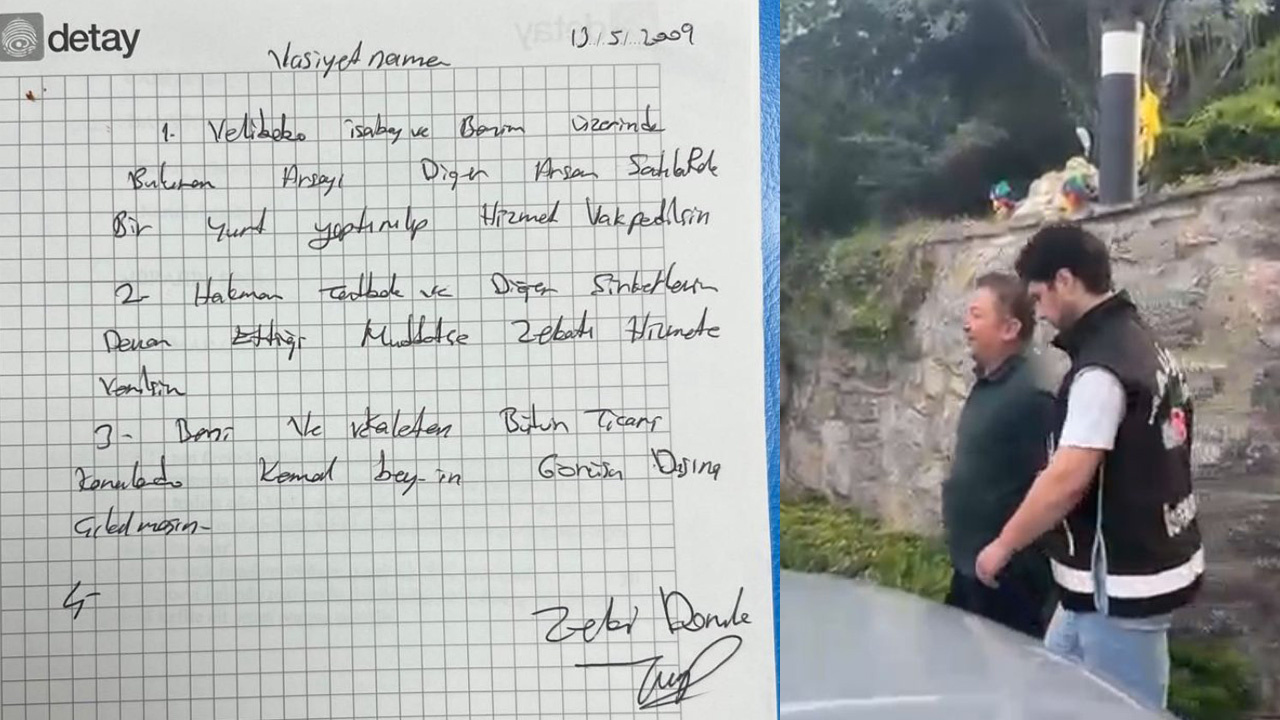 detay
13.5.2009
Vasiyet name
1. Velibaba isabey ve Benim üzerinde
Bulunan Arsayı Diğer Arsam Satılıp
Bir yurt yaptırılıp Hizmet Vakpedilsin
2- Hakman ve Diğer Şirketlerin
Devam Ettiği Muddetçe Zekatı Hizmete
Verilsin
3- Beni Ve Bütün Ticari
Konularda Kemal bey-in Görüşü Dışına
Çıkılmasın-
4-
Zeki